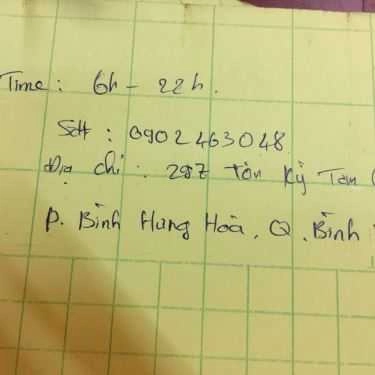 Time: 6h - 22h.
Sđt: 0902463048
Địa chỉ: 287 Tôn Kỳ Tan
P. Bình Hưng Hoà. Q. Bình